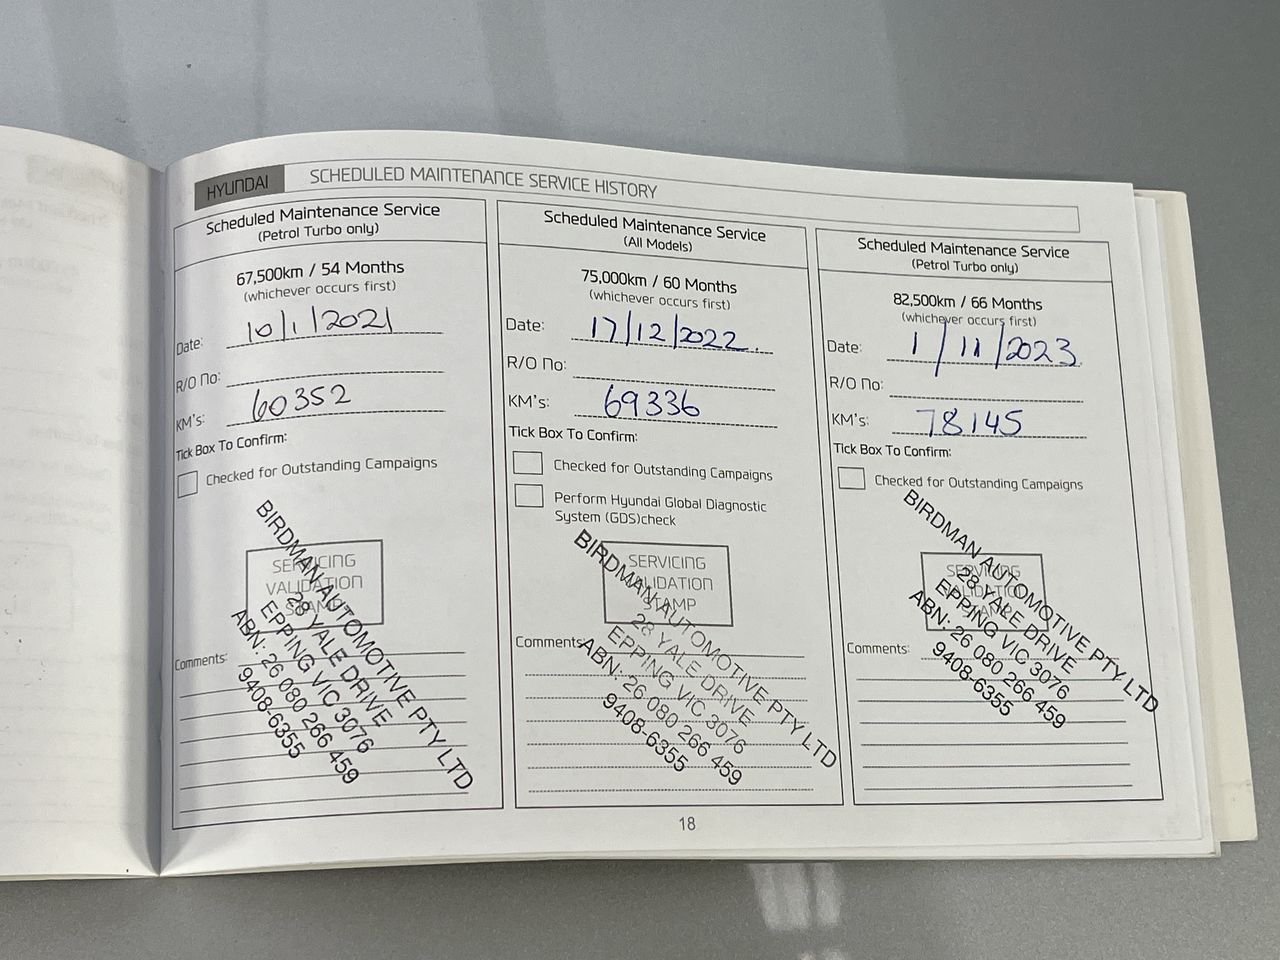 HYUNDAI
SCHEDULED MAINTENANCE SERVICE HISTORY
Scheduled Maintenance Service
(Petrol Turbo only)
67,500km / 54 Months
(whichever occurs first)
Date: 10/1/2021
R/O No:
KM's: 60352
Tick Box To Confirm:
Checked for Outstanding Campaigns
SERVICING
VALIDATION
STAMP
BIRDMAN AUTOMOTIVE PTY LTD
28 YALE DRIVE
EPPING VIC 3076
ABN: 26 080 266 459
9408-6355
Comments:
Scheduled Maintenance Service
(All Models)
75,000km / 60 Months
(whichever occurs first)
Date: 17/12/2022.
R/O No:
KM's: 69336
Tick Box To Confirm:
Checked for Outstanding Campaigns
Perform Hyundai Global Diagnostic
System (GDS)check
SERVICING
VALIDATION
STAMP
BIRDMAN AUTOMOTIVE PTY LTD
28 YALE DRIVE
EPPING VIC 3076
ABN: 26 080 266 459
9408-6355
Comments:
Scheduled Maintenance Service
(Petrol Turbo only)
82,500km / 66 Months
(whichever occurs first)
Date: 1/11/2023
R/O No:
KM's: 78145
Tick Box To Confirm:
Checked for Outstanding Campaigns
SERVICING
VALIDATION
STAMP
BIRDMAN AUTOMOTIVE PTY LTD
28 YALE DRIVE
EPPING VIC 3076
ABN: 26 080 266 459
9408-6355
Comments:
18